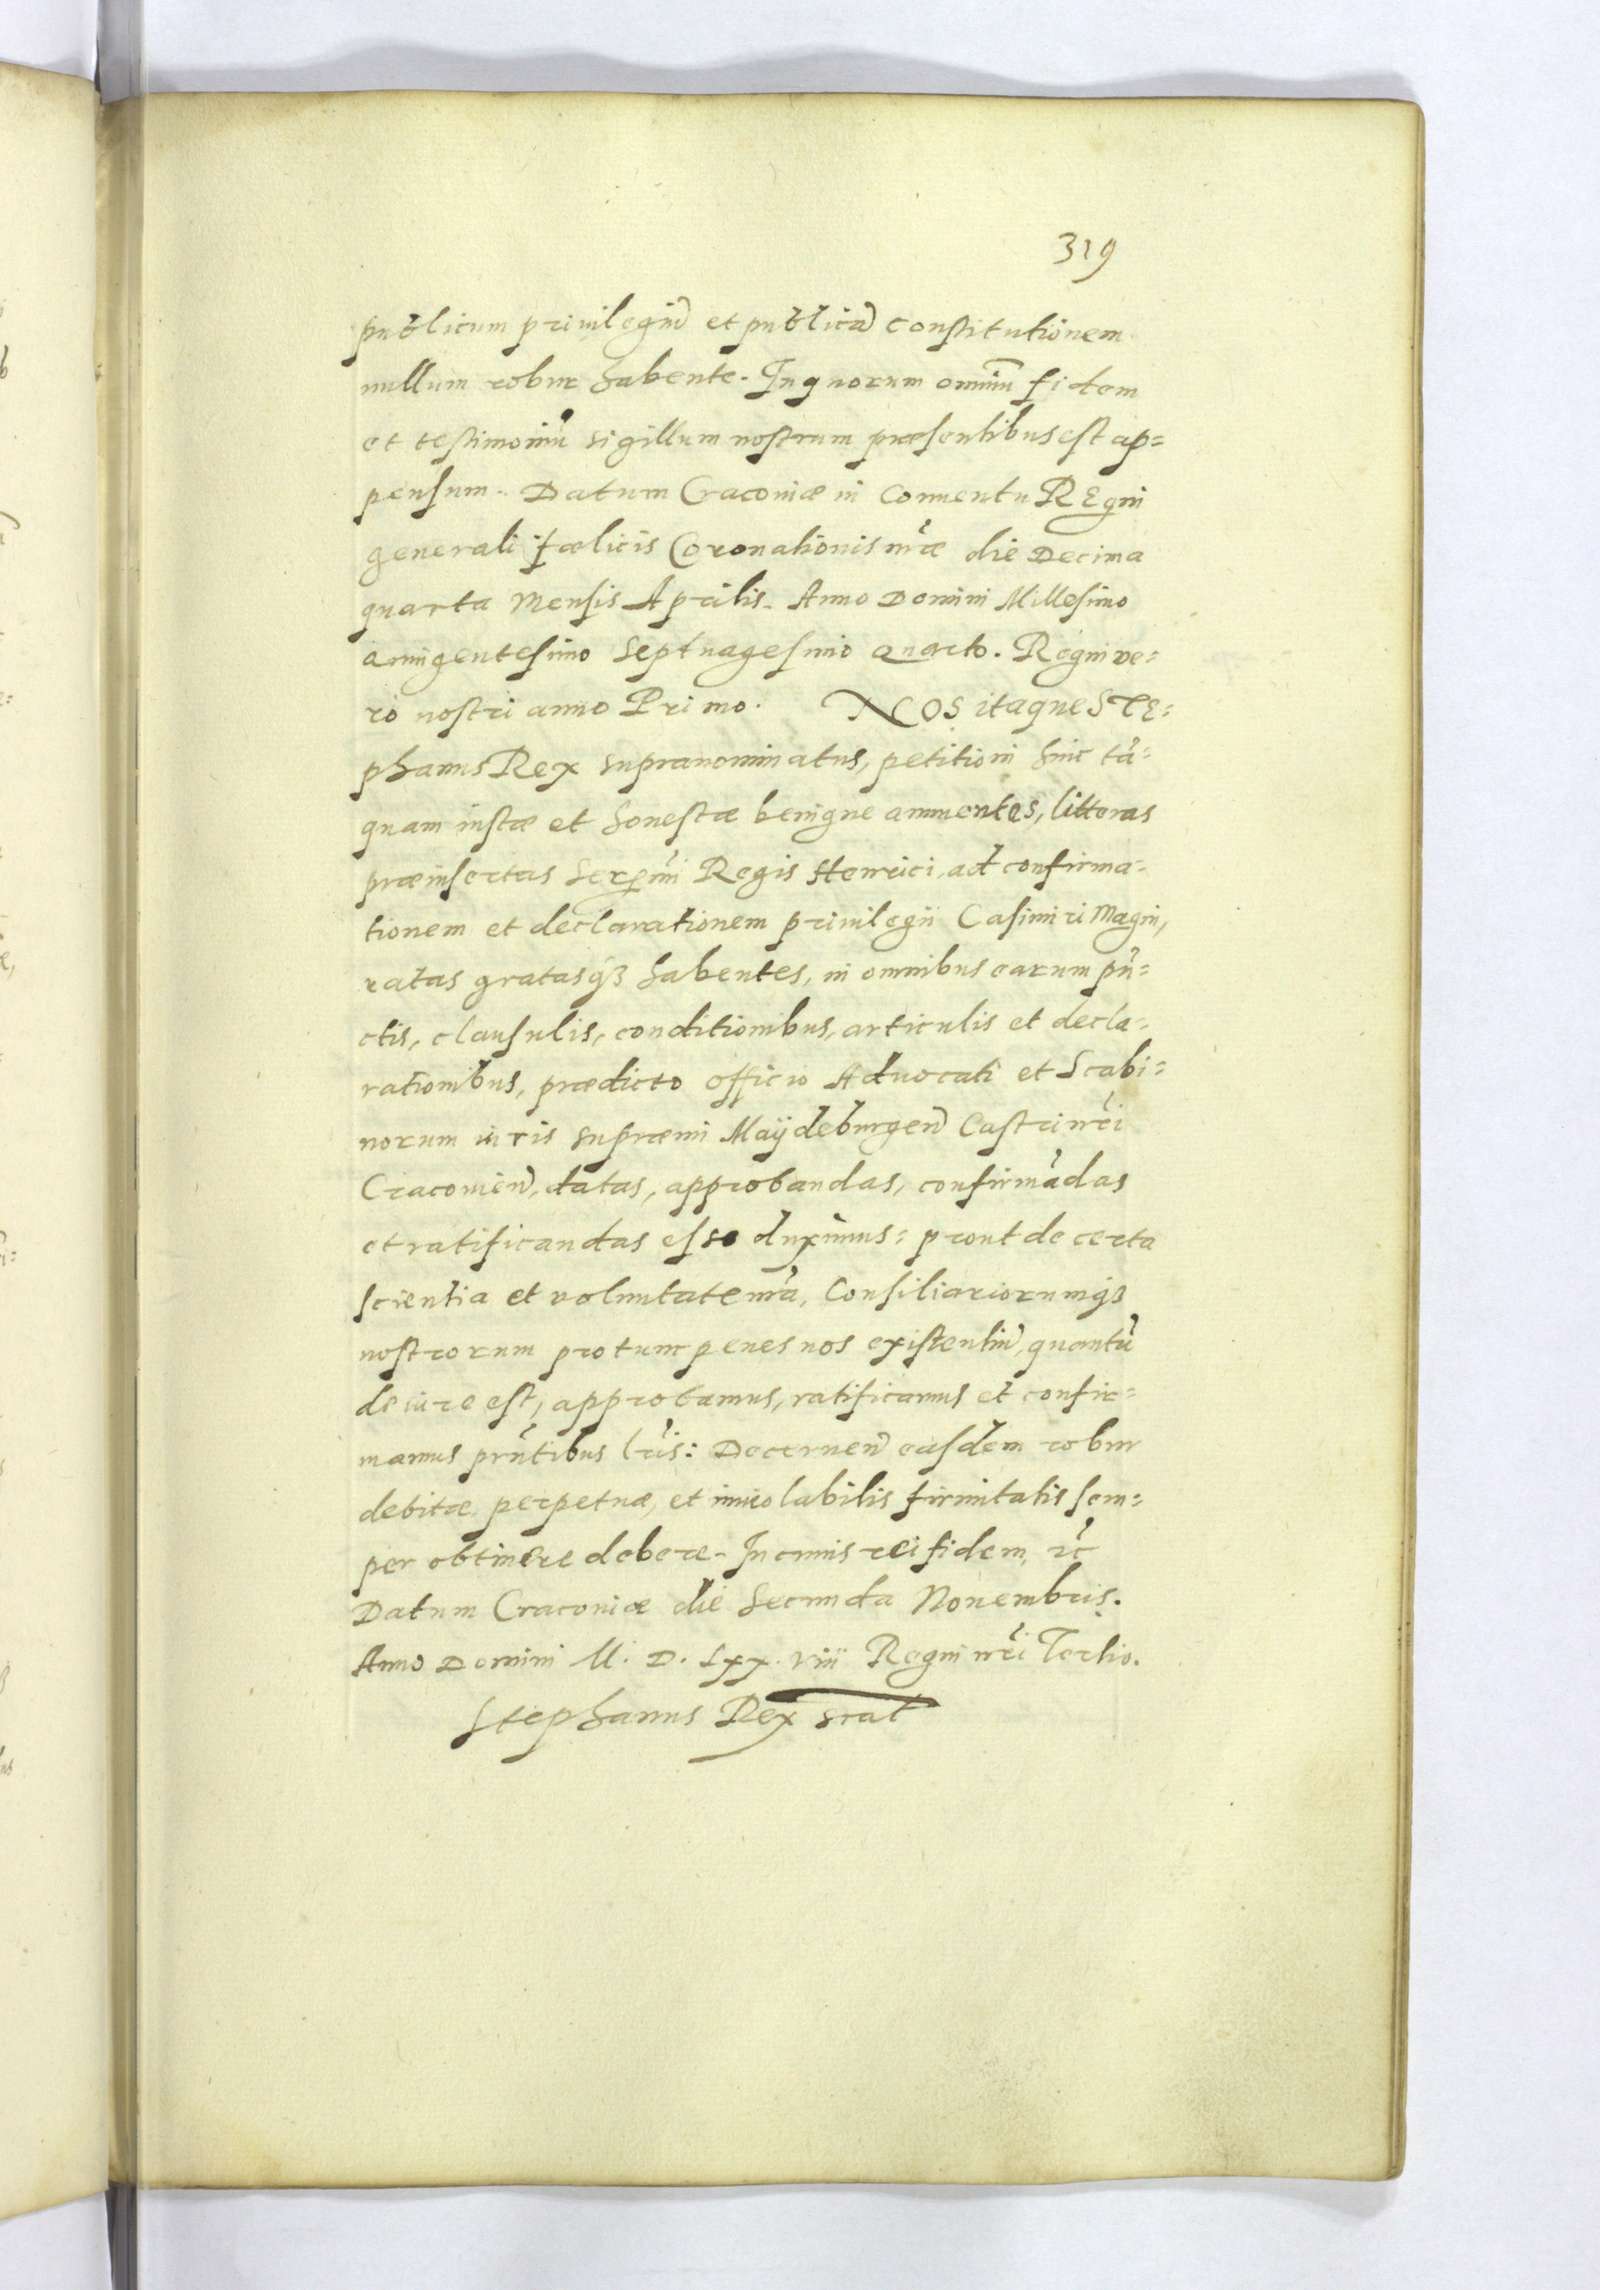 319
publicum privilegiũ et publicã constitutionem
nullum robur habente. In quorum omniũ fidem
et testimoniũ sigillum nostrum præsentibus est ap=
pensum. Datum Cracoviæ in Conventu REgni
generali fœlicis Coronationis nr̃æ die Decima
quarta Mensis Aprilis. Anno Domini Millesimo
Quingentesimo Septuagesimo Quarto. Regni ve=
ro nostri anno Primo. NOS itaque STE=
phanus Rex supranominatus, petitioni huic tã=
quam iustæ et honestæ benigne annuentes, litteras
præinsertas Serm̃i Regis Henrici, ad confirma=
tionem et declarationem privilegii Casimiri Magni,
ratas gratasq3 habentes, in omnibus earum pũ=
ctis, clausulis, conditionibus, articulis et decla=
rationibus, prædicto officio Advocati et Scabi=
norum iuris supræmi Maÿdeburgeñ Castri nr̃i
Cracovieñ, datas, approbandas, confirmãdas
et ratificandas esse duximus: prout de certa
scientia et voluntate nr̃a, Consiliariorumq3
nostrorum pro tunc penes nos existentiũ, quantũ
de iure est, approbamus, ratificamus et confir=
mamus prñtibus lr̃is: Decerneñ easdem robur
debitæ perpetuæ, et inviolabilis firmitatis sem=
per obtinere debere. In cuius rei fidem, rc̃
Datum Cracoviæ die Secunda Novembris.
Anno Domini M. D. Lxx. viii Regni nr̃i Tertio.
Stephanus Rex srat